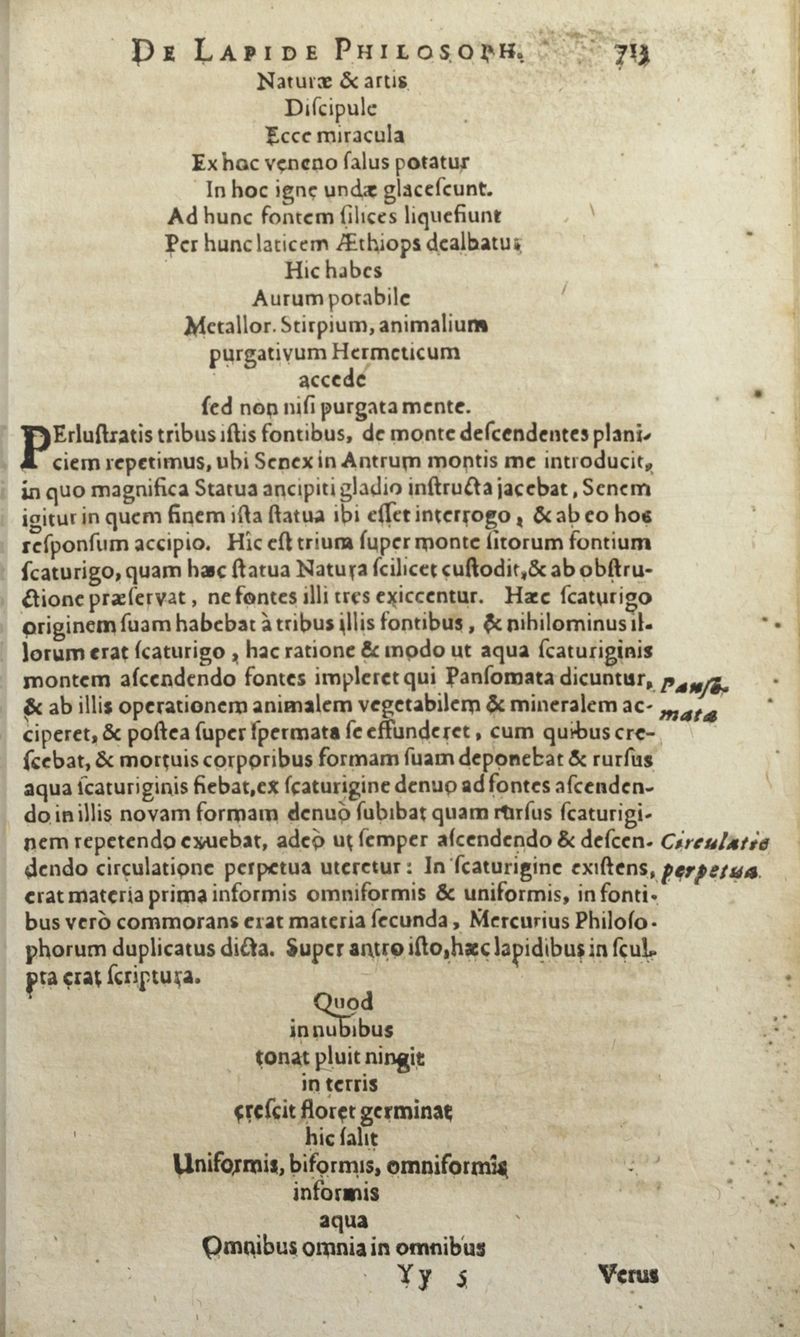 DE LAPIDE PHILOSOPH. 713
Naturæ & artis
Diſcipule
Ecce miracula
Ex hoc veneno ſalus potatur
In hoc igne undæ glaceſcunt.
Ad hunc fontem ſilices liquefiunt
Per hunc laticem Æthiops dealbatus
Hic habes
Aurum potabile
Metallor. Stirpium, animalium
purgativum Hermeticum
accede
ſed non niſi purgata mente.
PErluſtratis tribus iſtis fontibus, de monte deſcendentes plani-
ciem repetimus, ubi Senex in Antrum montis me introducit,
in quo magnifica Statua ancipiti gladio inſtructa jacebat, Senem
igitur in quem finem iſta ſtatua ibi eſſet interrogo, & ab eo hoc
reſponſum accipio. Hic eſt trium ſuper monte ſitorum fontium
ſcaturigo, quam hæc ſtatua Natura ſcilicet cuſtodit, & ab obſtru-
ctione præſervat, ne fontes illi tres exiccentur. Hæc ſcaturigo
originem ſuam habebat à tribus illis fontibus, & nihilominus il-
lorum erat ſcaturigo, hac ratione & modo ut aqua ſcaturiginis
montem aſcendendo fontes impleret qui Panſomata dicuntur, Panſo-
& ab illis operationem animalem vegetabilem & mineralem ac- mata
ciperet, & poſtea ſuper ſpermata ſe effunderet, cum quibus cre-
ſcebat, & mortuis corporibus formam ſuam deponebat & rurſus
aqua ſcaturiginis fiebat, ex ſcaturigine denuo ad fontes aſcenden-
do in illis novam formam denuò ſubibat quam rurſus ſcaturigi-
nem repetendo exuebat, adeò ut ſemper aſcendendo & deſcen- Circulatio
dendo circulatione perpetua uteretur: In ſcaturigine exiſtens, perpetua.
erat materia prima informis omniformis & uniformis, in fonti-
bus verò commorans erat materia ſecunda, Mercurius Philoſo-
phorum duplicatus dicta. Super antro iſto, hæc lapidibus inſcul-
pta erat ſcriptura.
Quod
in nubibus
tonat pluit ningit
in terris
creſcit floret germinat
hic ſalit
Uniformis, biformis, omniformis
informis
aqua
Omnibus omnia in omnibus
Yy 5 Verus